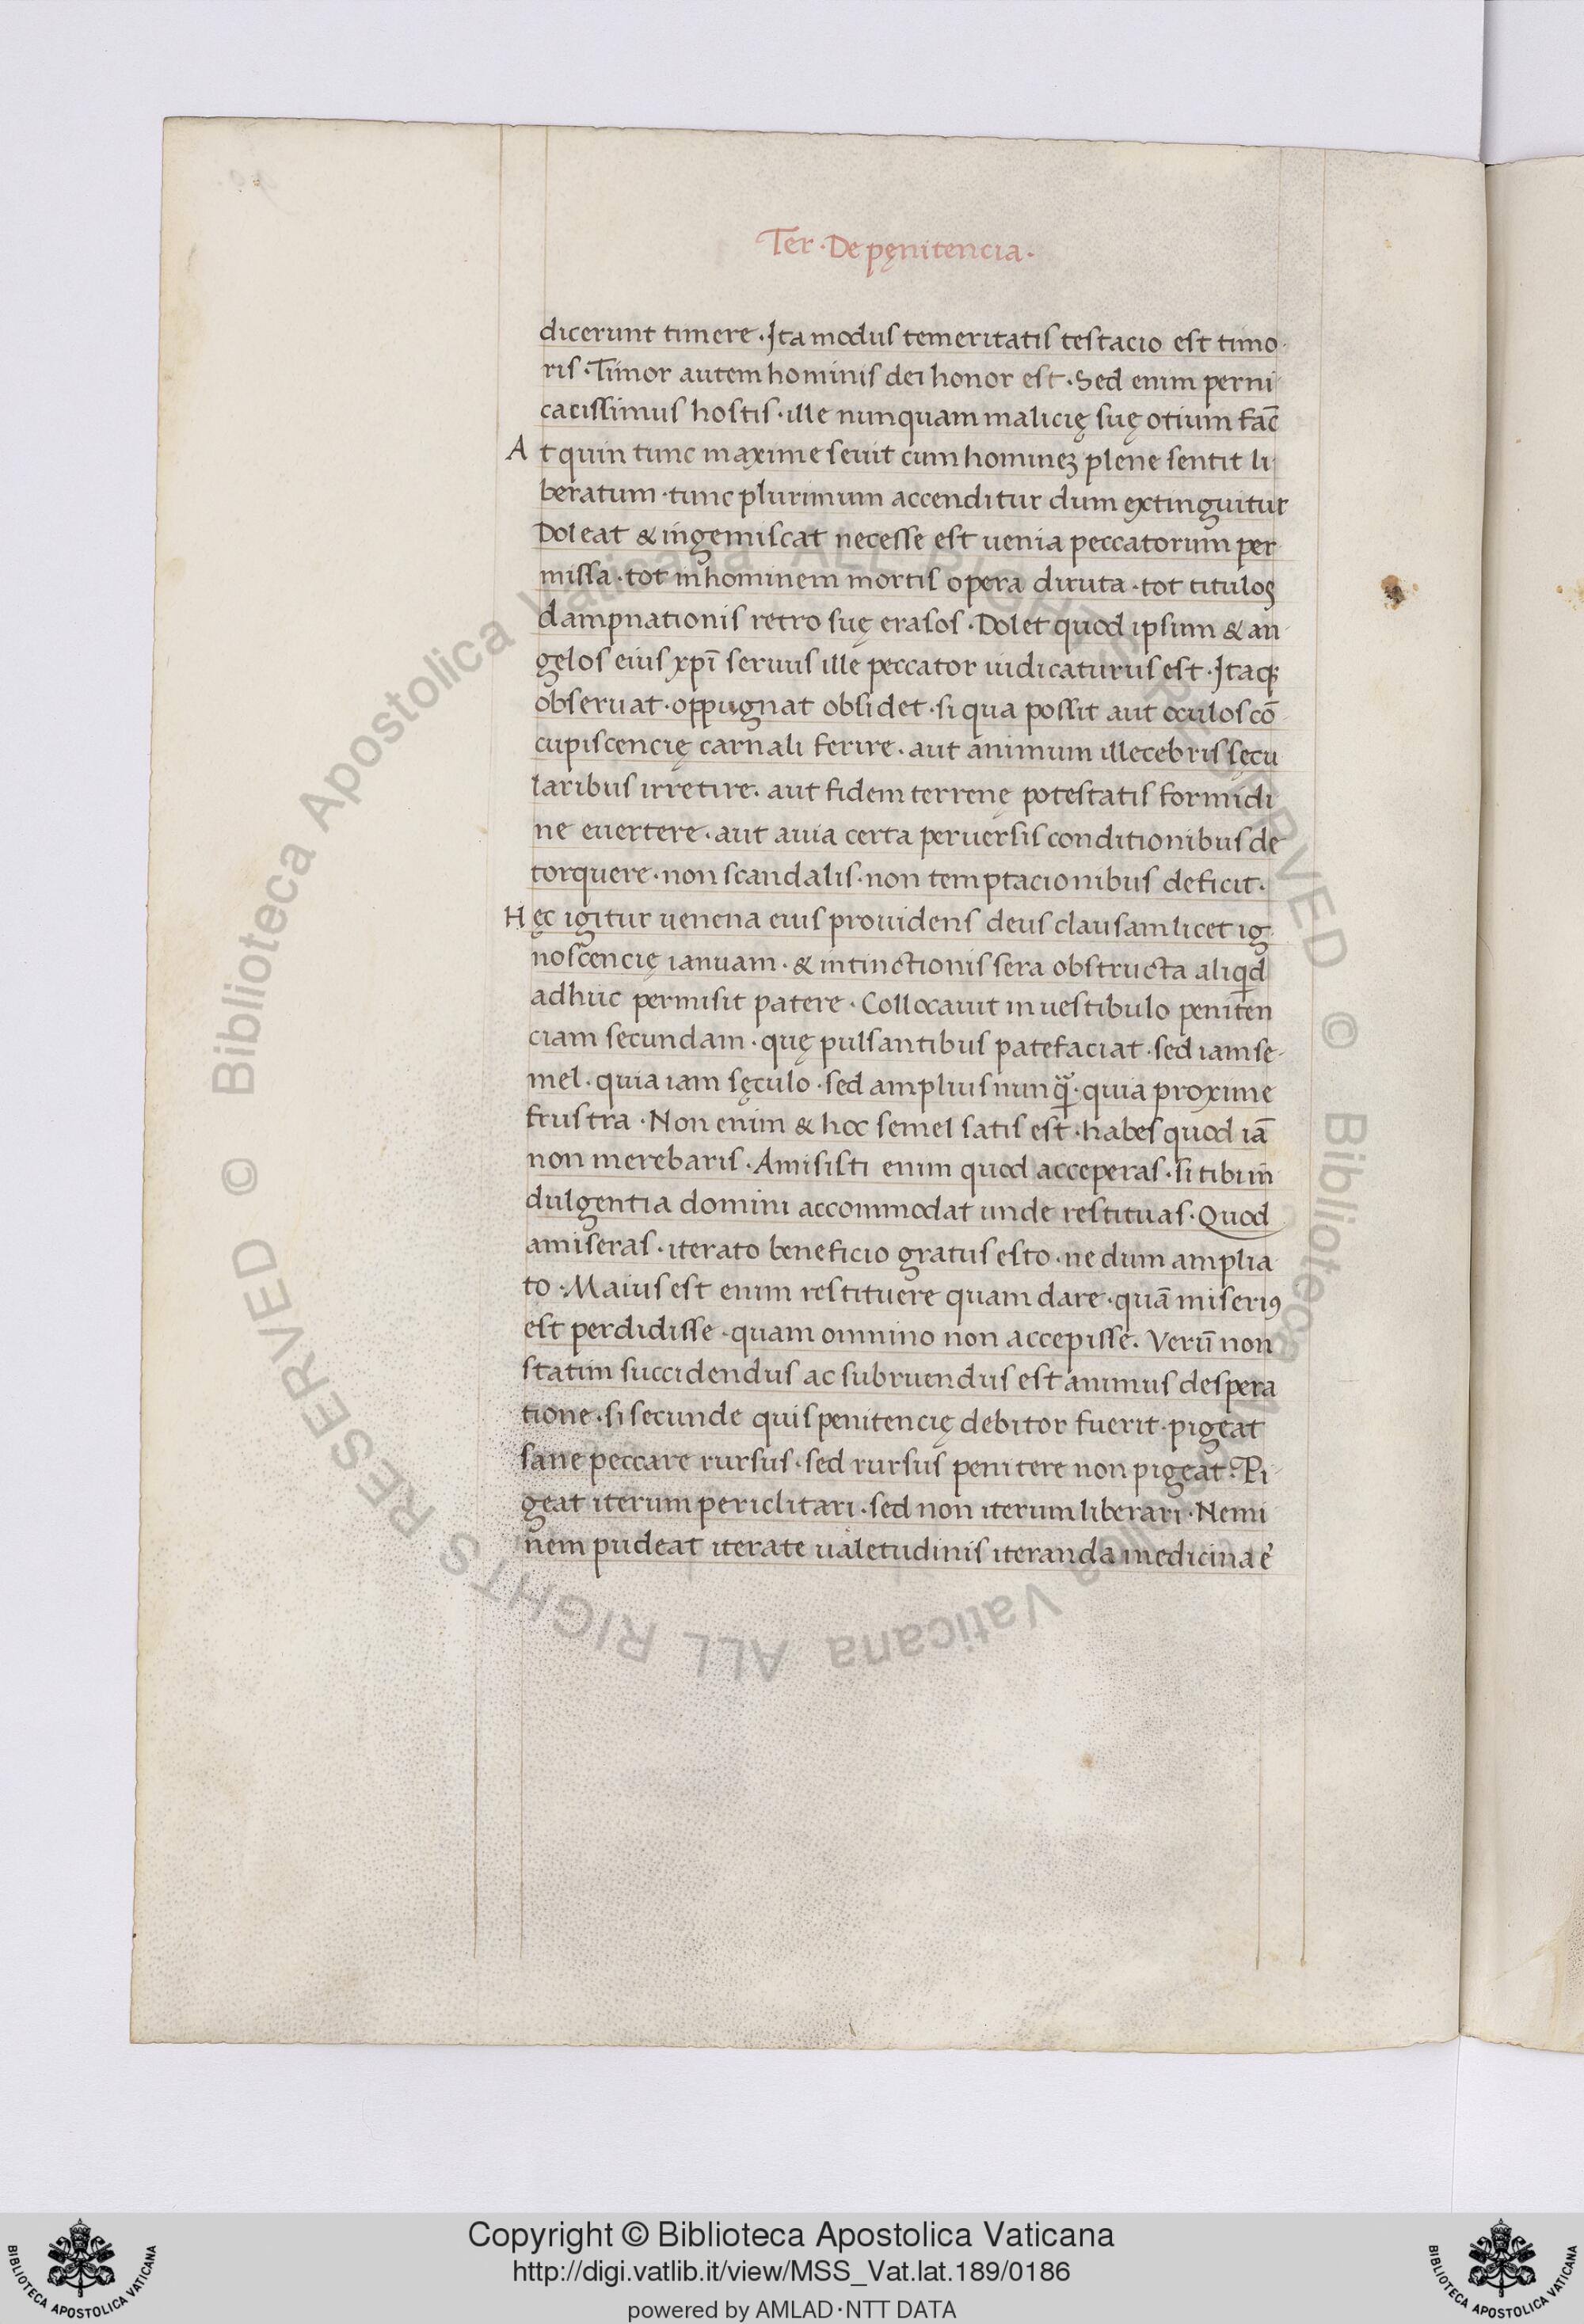 Ter · De pęnitencia ·
dicerunt timere · Ita modus temeritatis testacio est timo
ris · Timor autem hominis dei honor est · Sed enim perni
cacissimus hostis · ille nunquam malicię suę otium fac̄
At quin tunc maxime seuit cum homineꝫ plene sentit li
beratum · tunc plurimum accenditur dum extinguitur
Doleat & ingemiscat necesse est uenia peccatorum per
missa · tot in hominem mortis opera diruta · tot titulos
dampnationis retro suę erasos · Dolet quod ipsum & an
gelos eius xp̄i seruus ille peccator iudicaturus est · Itaqꝫ
obseruat · oppugnat obsidet · si qua possit aut oculos cō
cupiscencię carnali ferire · aut animum illecebris sęcu
laribus irretire · aut fidem terrenę potestatis formidi
ne euertere · aut auia certa peruersis conditionibus de
torquere · non scandalis · non temptacionibus deficit ·
Hęc igitur uenena eius prouidens deus clausam licet ig
noscencię ianuam · & intinctionis sera obstructa aliqid
adhuc permisit patere · Collocauit in uestibulo peniten
ciam secundam · quę pulsantibus patefaciat · sed iam se-
mel · quia iam sęculo · sed amplius nunqᷓ · quia proxime
frustra · Non enim & hoc semel satis est · habes quod iā
non merebaris · Amisisti enim quod acceperas · si tibi in
dulgentia domini accommodat unde restituas · Quod
amiseras · iterato beneficio gratus esto · ne dum amplia
to · Maius est enim restituere quam dare · quā miseriꝰ
est perdidisse · quam omnino non accepisse · Verū non
statim succidendus ac subruendus est animus despera
tione · si secunde quis penitencię debitor fuerit · pigeat
sane peccare rursus · sed rursus penitere non pigeat · Pi-
geat iterum periclitari · sed non iterum liberari · Nemi
nem pudeat iterate ualetudinis iteranda medicina ē
© Biblioteca Apostolica Vaticana ALL RIGHTS RESERVED © Biblioteca Apostolica Vaticana ALL RIGHTS RESERVED
Copyright © Biblioteca Apostolica Vaticana
http://digi.vatlib.it/view/MSS_Vat.lat.189/0186
powered by AMLAD·NTT DATA
BIBLIOTECA APOSTOLICA VATICANA
BIBLIOTECA APOSTOLICA VATICANA